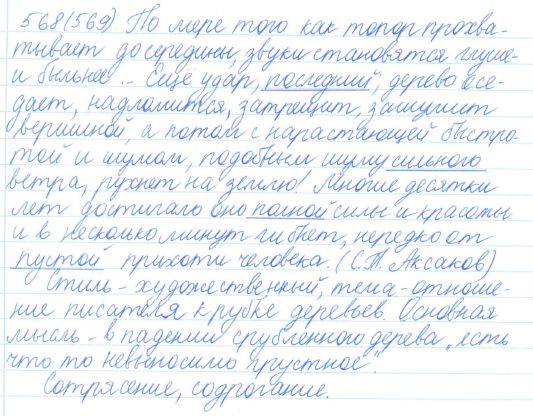 568(569) По мере того как топор прохва-
тывает до середины, звуки становятся глуше
и больнее... Ещё удар, последний, дерево осе-
дает, надломится, затрещит, зашумит
вершиной, а потом с нарастающей быстро-
той и шумом, подобным шуму сильного
ветра, рухнет на землю! Многие десятки
лет достигало оно полной силы и красоты
и в несколько минут гибнет, нередко от
пустой прихоти человека. (С.Т. Аксаков)
Стиль - художественный, тема - отноше-
ние писателя к рубке деревьев. Основная
мысль - в падении срубленного дерева „есть
что то невыносимо грустное".
Сотрясение, содрогание.